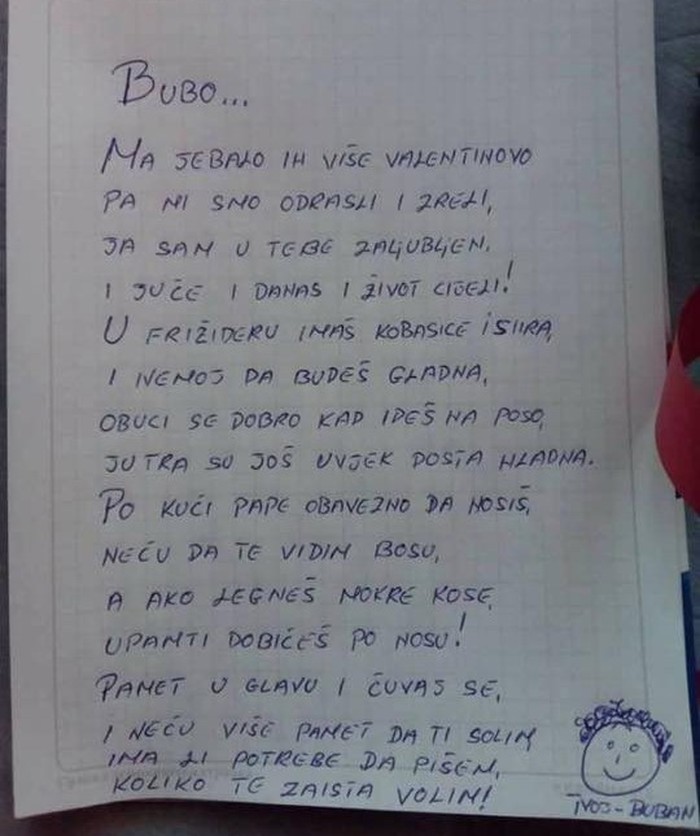 BUBO...
MA JEBALO IH VIŠE VALENTINOVO
PA MI SMO ODRASLI I ZRELI,
JA SAM U TEBE ZALJUBLJEN.
I JUČE I DANAS I ŽIVOT CIJELI!
U FRIŽIDERU IMAŠ KOBASICE i SIRA,
I NEMOJ DA BUDEŠ GLADNA,
OBUCI SE DOBRO KAD IDEŠ NA POSO,
JUTRA SU JOŠ UVJEK DOSTA HLADNA.
PO KUĆI PAPE OBAVEZNO DA NOSIŠ,
NEĆU DA TE VIDIM BOSU,
A AKO LEGNEŠ MOKRE KOSE,
UPAMTI DOBIĆEŠ PO NOSU!
PAMET U GLAVU I ČUVAS SE,
I NEĆU VIŠE PAMET DA TI SOLIM
IMA LI POTREBE DA PIŠEM,
KOLIKO TE ZAISTA VOLIM!
TVOJ-BUBAN